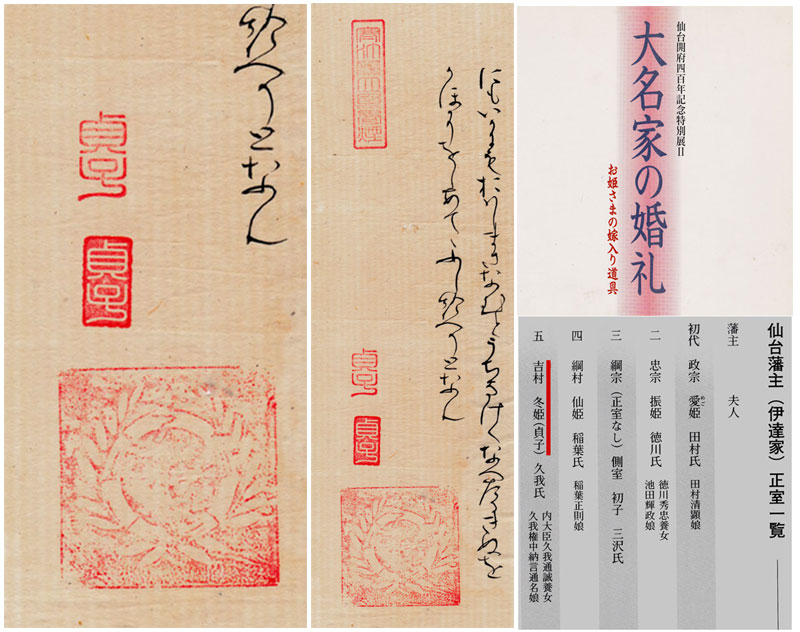 給へりとなん
貞子
貞子
かほにをしあてゝふし給へりとなん
貞子
貞子
仙台開府四百年記念特別展Ⅱ
大名家の婚礼
お姫さまの嫁入り道具
仙台藩主（伊達家）正室一覧
藩主 夫人
初代 政宗 愛姫 田村氏 田村清顕娘
めご
二 忠宗 振姫 徳川氏 徳川秀忠養女
池田輝政娘
三 綱宗（正室なし）側室 初子 三沢氏
四 綱村 仙姫 稲葉氏 稲葉正則娘
五 吉村 冬姫（貞子）久我氏 内大臣久我通誠養女
久我権中納言通名娘